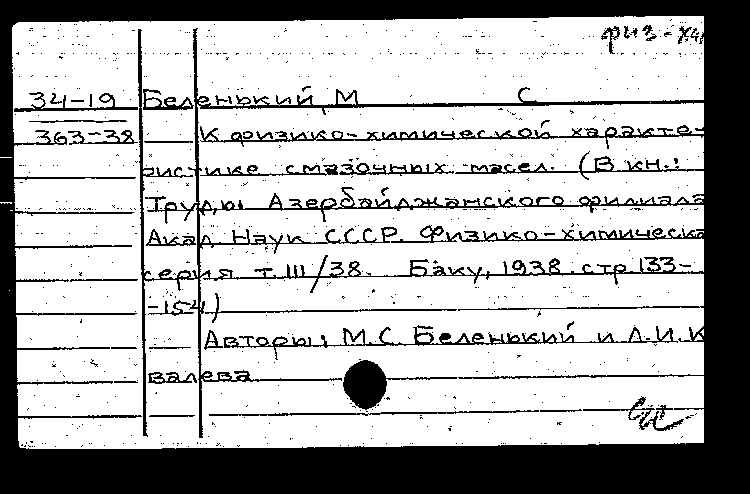 физ-хи
34-19 Беленький, М С
363-38 К физико-химической характе-
ристике смазочных масел. (В кн.:
Труды Азербайджанского филиала
Акад. Наук СССР. Физико-химическа
серия т. III/38. Баку, 1938. стр. 133-
-154.)
Авторы: М.С. Беленький и А.И. К
валева